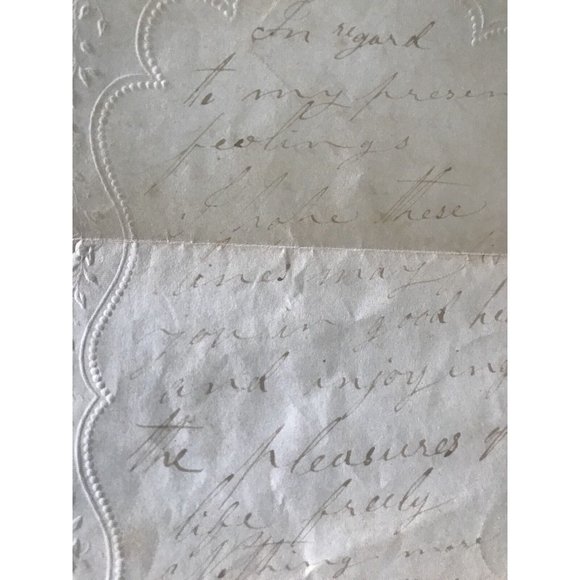 In regard
to my presen
feelings
I hope these
lines may
you in good he
and injoying
the pleasures of
life freely
Nothing more